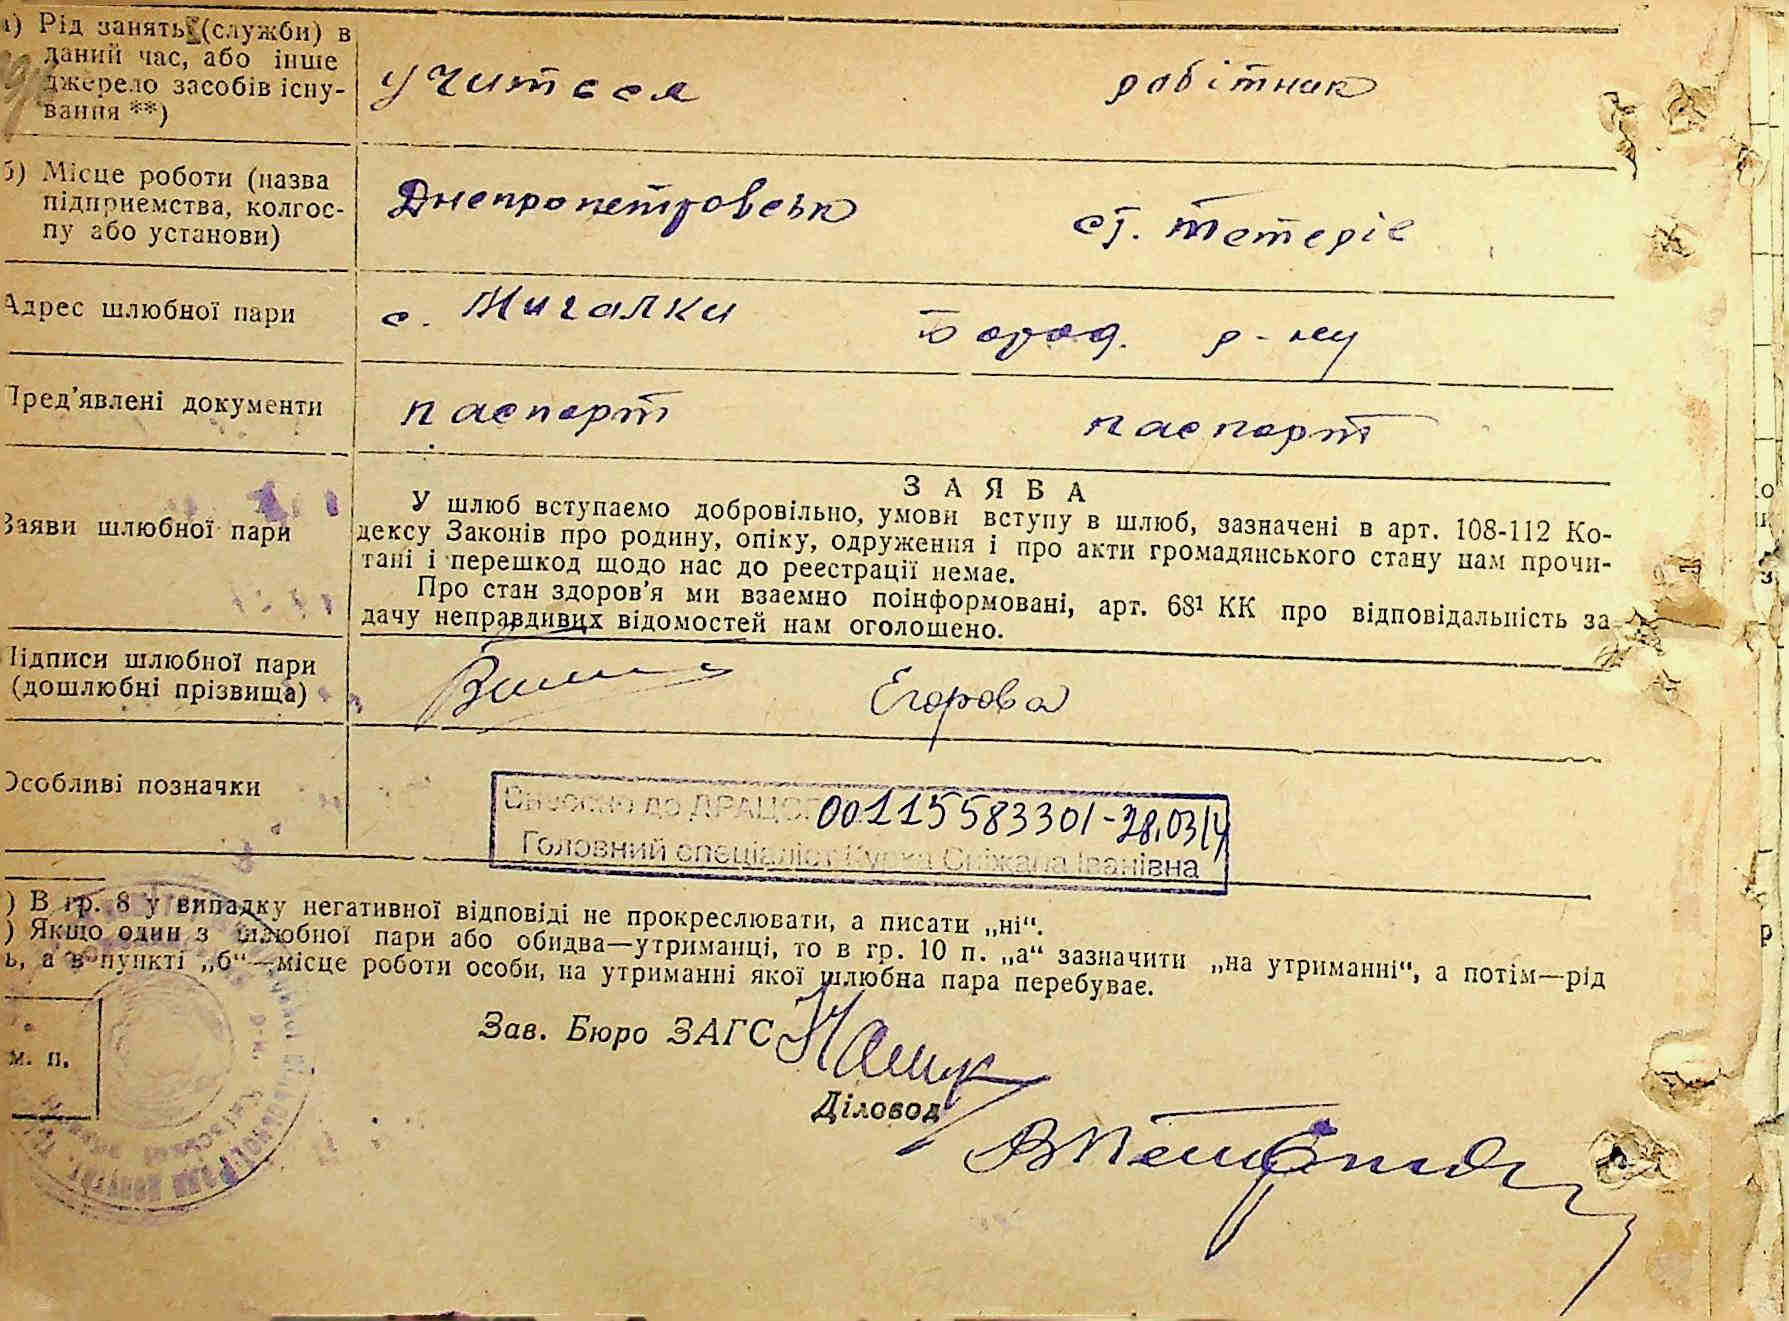 а) Рід занять (служби) в
даний час, або інше
джерело засобів існу-
вання **)
робітник
б) Місце роботи (назва
підприємства, колгос-
пу або установи)
Днепропетровськ
ст. Тетерів
Адрес шлюбної пари
с. Мигалки Бород. р-ну
Пред'явлені документи
паспорт паспорт
Заяви шлюбної пари
ЗАЯВА
У шлюб вступаємо добровільно, умови вступу в шлюб, зазначені в арт. 108-112 Ко-
дексу Законів про родину, опіку, одруження і про акти громадянського стану нам прочи-
тані і перешкод щодо нас до реєстрації немає.
Про стан здоров'я ми взаємно поінформовані, арт. 68¹ КК про відповідальність за
дачу неправдивих відомостей нам оголошено.
Підписи шлюбної пари
(дошлюбні прізвища)
Егорова
Особливі позначки
Внесено до ДРАЦСГ 00115583301-28.03.14
Головний спеціаліст Курка Сніжана Іванівна
) В гр. 8 у випадку негативної відповіді не прокреслювати, а писати „ні“.
) Якщо один з шлюбної пари або обидва—утриманці, то в гр. 10 п. „а“ зазначити „на утриманні“, а потім—рід
ь, а в пункті „б“—місце роботи особи, на утриманні якої шлюбна пара перебуває.
Зав. Бюро ЗАГС
м. п.
Діловод